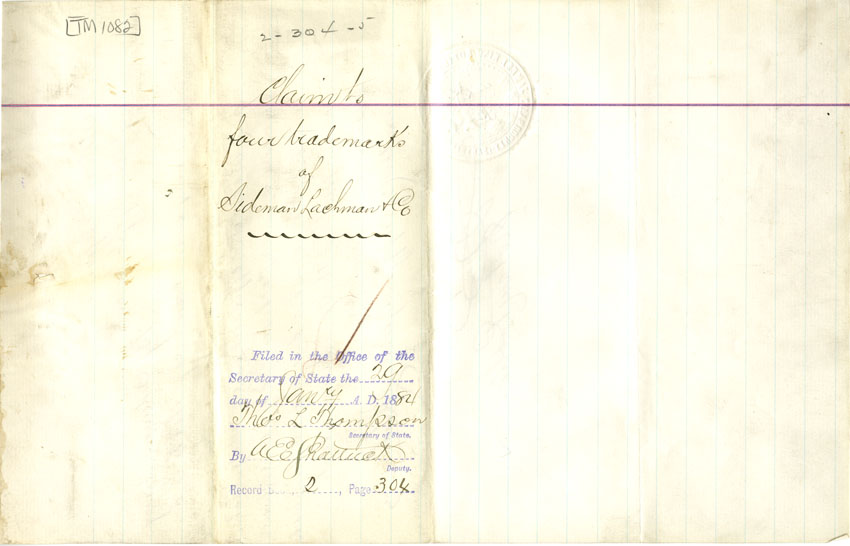 [TM 1082]
2-304-5
Claim to
four trademarks
of
Sideman Lachman & Co
Filed in the Office of the
Secretary of State the 29
day of Jan'ry A. D. 1884
Thos L Thompson
Secretary of State.
By A E Shattuck
Deputy.
Record 2, Page 304